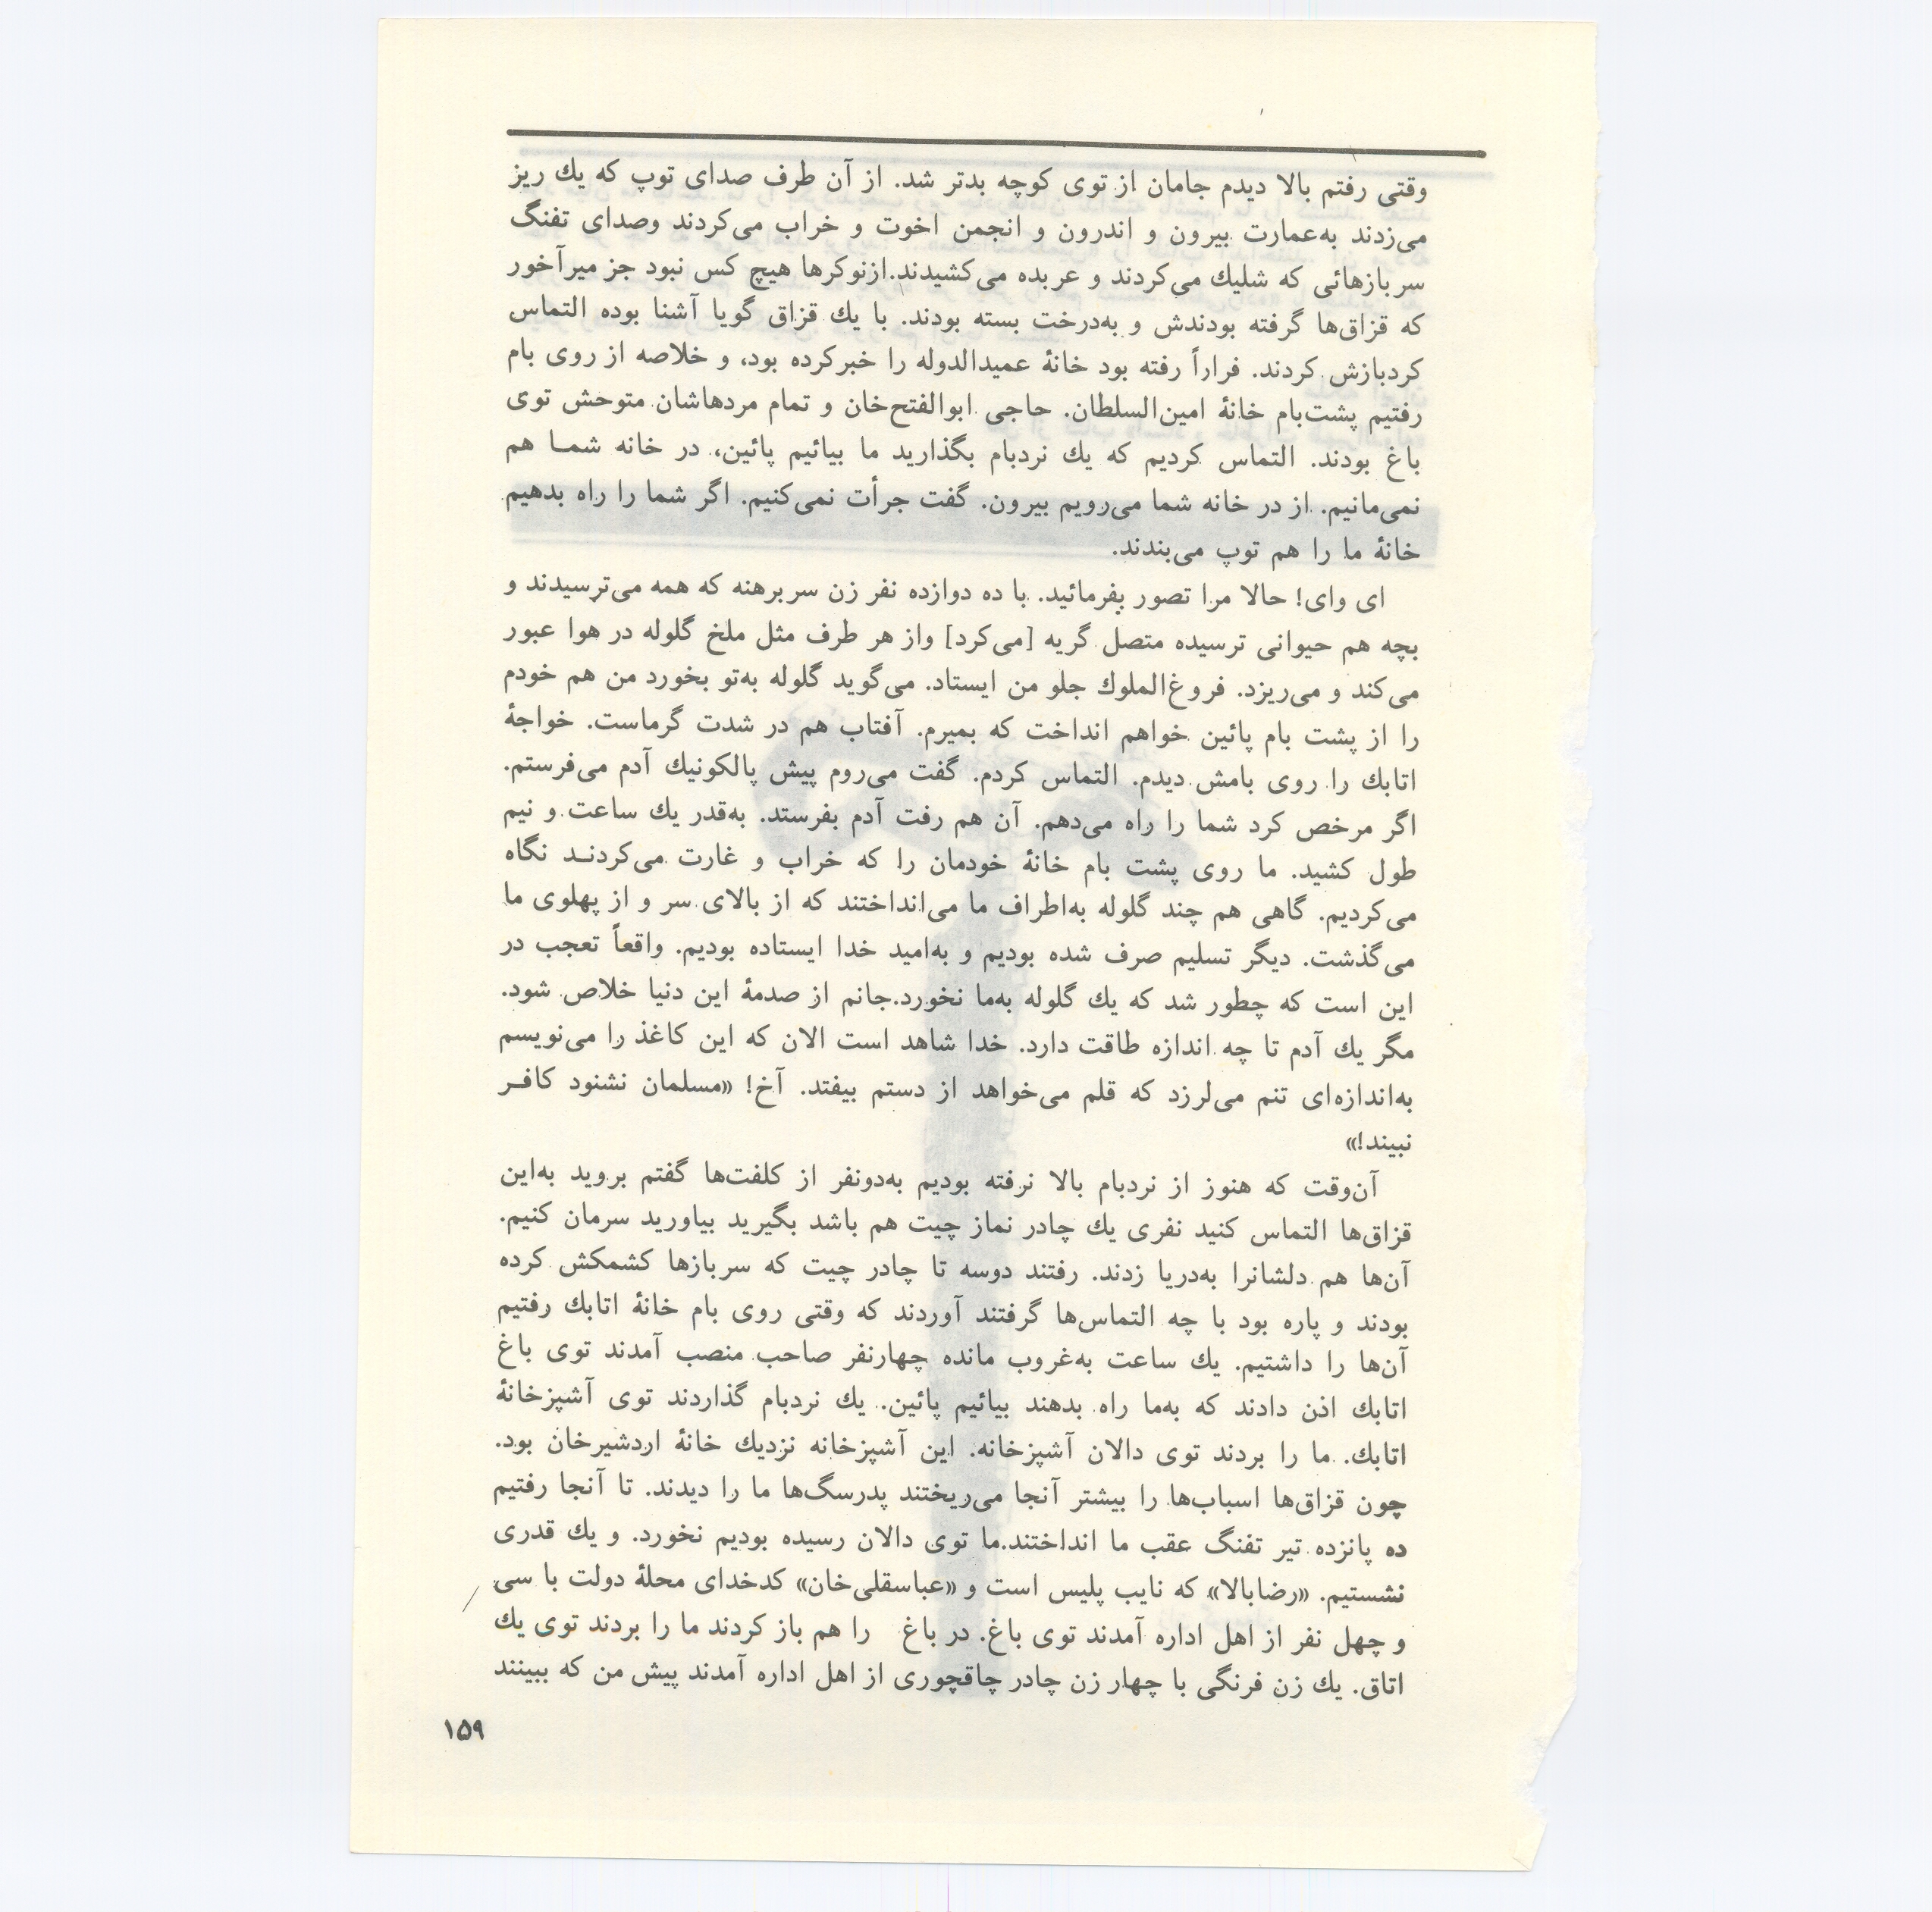 وقتی رفتم بالا دیدم جامان از توی کوچه بدتر شد. از آن طرف صدای توپ که یك ریز
می‌زدند به‌عمارت بیرون و اندرون و انجمن اخوت و خراب می‌کردند وصدای تفنگ
سربازهائی که شلیك می‌کردند و عربده می‌کشیدند.ازنوکرها هیچ کس نبود جز میرآخور
که قزاق‌ها گرفته بودندش و به‌درخت بسته بودند. با یك قزاق گویا آشنا بوده التماس
کردبازش کردند. فراراً رفته بود خانهٔ عمیدالدوله را خبرکرده بود، و خلاصه از روی بام
رفتیم پشت‌بام خانهٔ امین‌السلطان. حاجی ابوالفتح‌خان و تمام مردهاشان متوحش توی
باغ بودند. التماس کردیم که یك نردبام بگذارید ما بیائیم پائین، در خانه شمـا هم
نمی‌مانیم. از در خانه شما می‌رویم بیرون. گفت جرأت نمی‌کنیم. اگر شما را راه بدهیم
خانهٔ ما را هم توپ می‌بندند.
ای وای! حالا مرا تصور بفرمائید. با ده دوازده نفر زن سربرهنه که همه می‌ترسیدند و
بچه هم حیوانی ترسیده متصل گریه [می‌کرد] واز هر طرف مثل ملخ گلوله در هوا عبور
می‌کند و می‌ریزد. فروغ‌الملوك جلو من ایستاد. می‌گوید گلوله به‌تو بخورد من هم خودم
را از پشت بام پائین خواهم انداخت که بمیرم. آفتاب هم در شدت گرماست. خواجهٔ
اتابك را روی بامش دیدم. التماس کردم. گفت می‌روم پیش پالکونیك آدم می‌فرستم.
اگر مرخص کرد شما را راه می‌دهم. آن هم رفت آدم بفرستد. به‌قدر یك ساعت و نیم
طول کشید. ما روی پشت بام خانهٔ خودمان را که خراب و غارت می‌کردنـد نگاه
می‌کردیم. گاهی هم چند گلوله به‌اطراف ما می‌انداختند که از بالای سر و از پهلوی ما
می‌گذشت. دیگر تسلیم صرف شده بودیم و به‌امید خدا ایستاده بودیم. واقعاً تعجب در
این است که چطور شد که یك گلوله به‌ما نخورد.جانم از صدمهٔ این دنیا خلاص شود.
مگر یك آدم تا چه اندازه طاقت دارد. خدا شاهد است الان که این کاغذ را می‌نویسم
به‌اندازه‌ای تنم می‌لرزد که قلم می‌خواهد از دستم بیفتد. آخ! «مسلمان نشنود کافـر
نبیند!»
آن‌وقت که هنوز از نردبام بالا نرفته بودیم به‌دونفر از کلفت‌ها گفتم بروید به‌این
قزاق‌ها التماس کنید نفری یك چادر نماز چیت هم باشد بگیرید بیاورید سرمان کنیم.
آن‌ها هم دلشانرا به‌دریا زدند. رفتند دوسه تا چادر چیت که سربازها کشمکش کرده
بودند و پاره بود با چه التماس‌ها گرفتند آوردند که وقتی روی بام خانهٔ اتابك رفتیم
آن‌ها را داشتیم. یك ساعت به‌غروب مانده چهارنفر صاحب منصب آمدند توی باغ
اتابك اذن دادند که به‌ما راه بدهند بیائیم پائین. یك نردبام گذاردند توی آشپزخانهٔ
اتابك. ما را بردند توی دالان آشپزخانه. این آشپزخانه نزدیك خانهٔ اردشیرخان بود.
چون قزاق‌ها اسباب‌ها را بیشتر آنجا می‌ریختند پدرسگ‌ها ما را دیدند. تا آنجا رفتیم
ده پانزده تیر تفنگ عقب ما انداختند.ما توی دالان رسیده بودیم نخورد. و یك قدری
نشستیم. «رضابالا» که نایب پلیس است و «عباسقلی‌خان» کدخدای محلهٔ دولت با سی
و چهل نفر از اهل اداره آمدند توی باغ. در باغ را هم باز کردند ما را بردند توی یك
اتاق. یك زن فرنگی با چهار زن چادر چاقچوری از اهل اداره آمدند پیش من که ببینند
۱۵۹